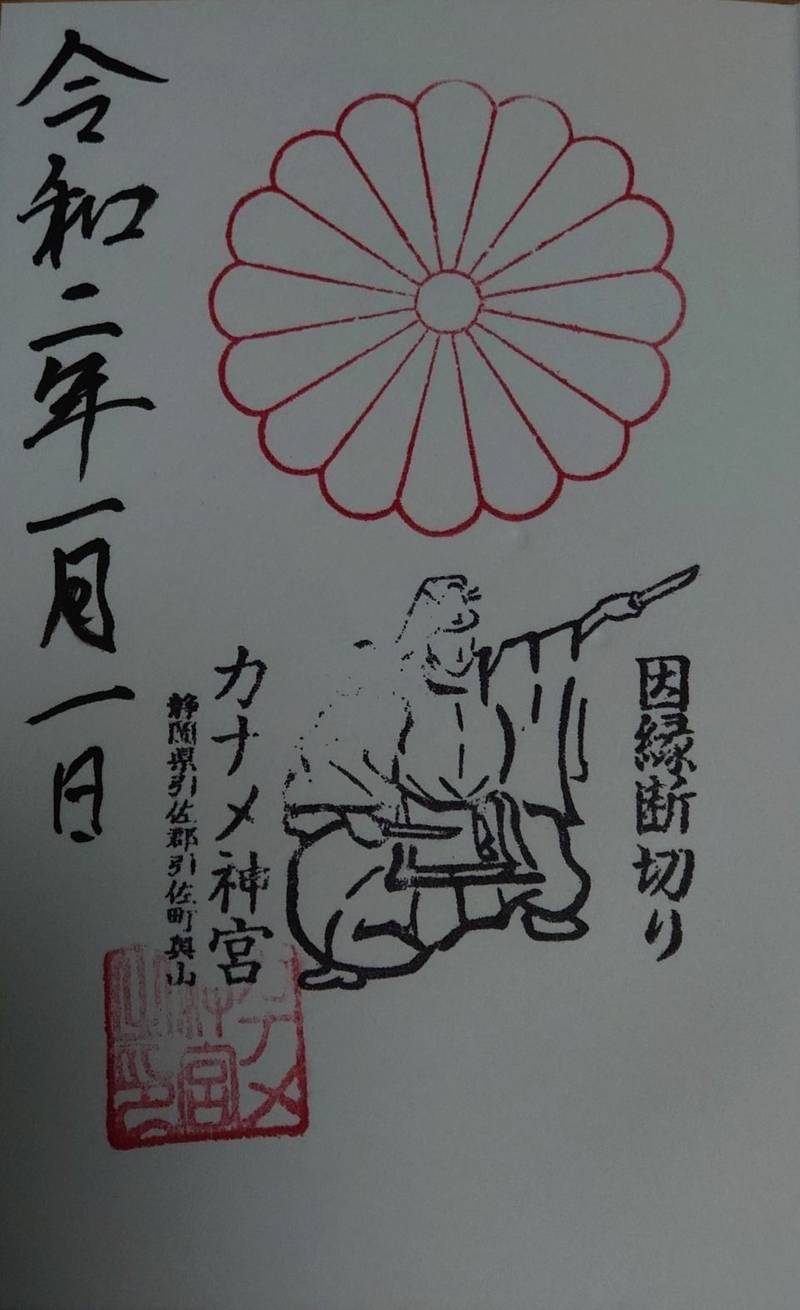 因縁断切り
カナメ神宮
静岡県引佐郡引佐町奥山
令和二年一月一日
カナメ
神宮
之印